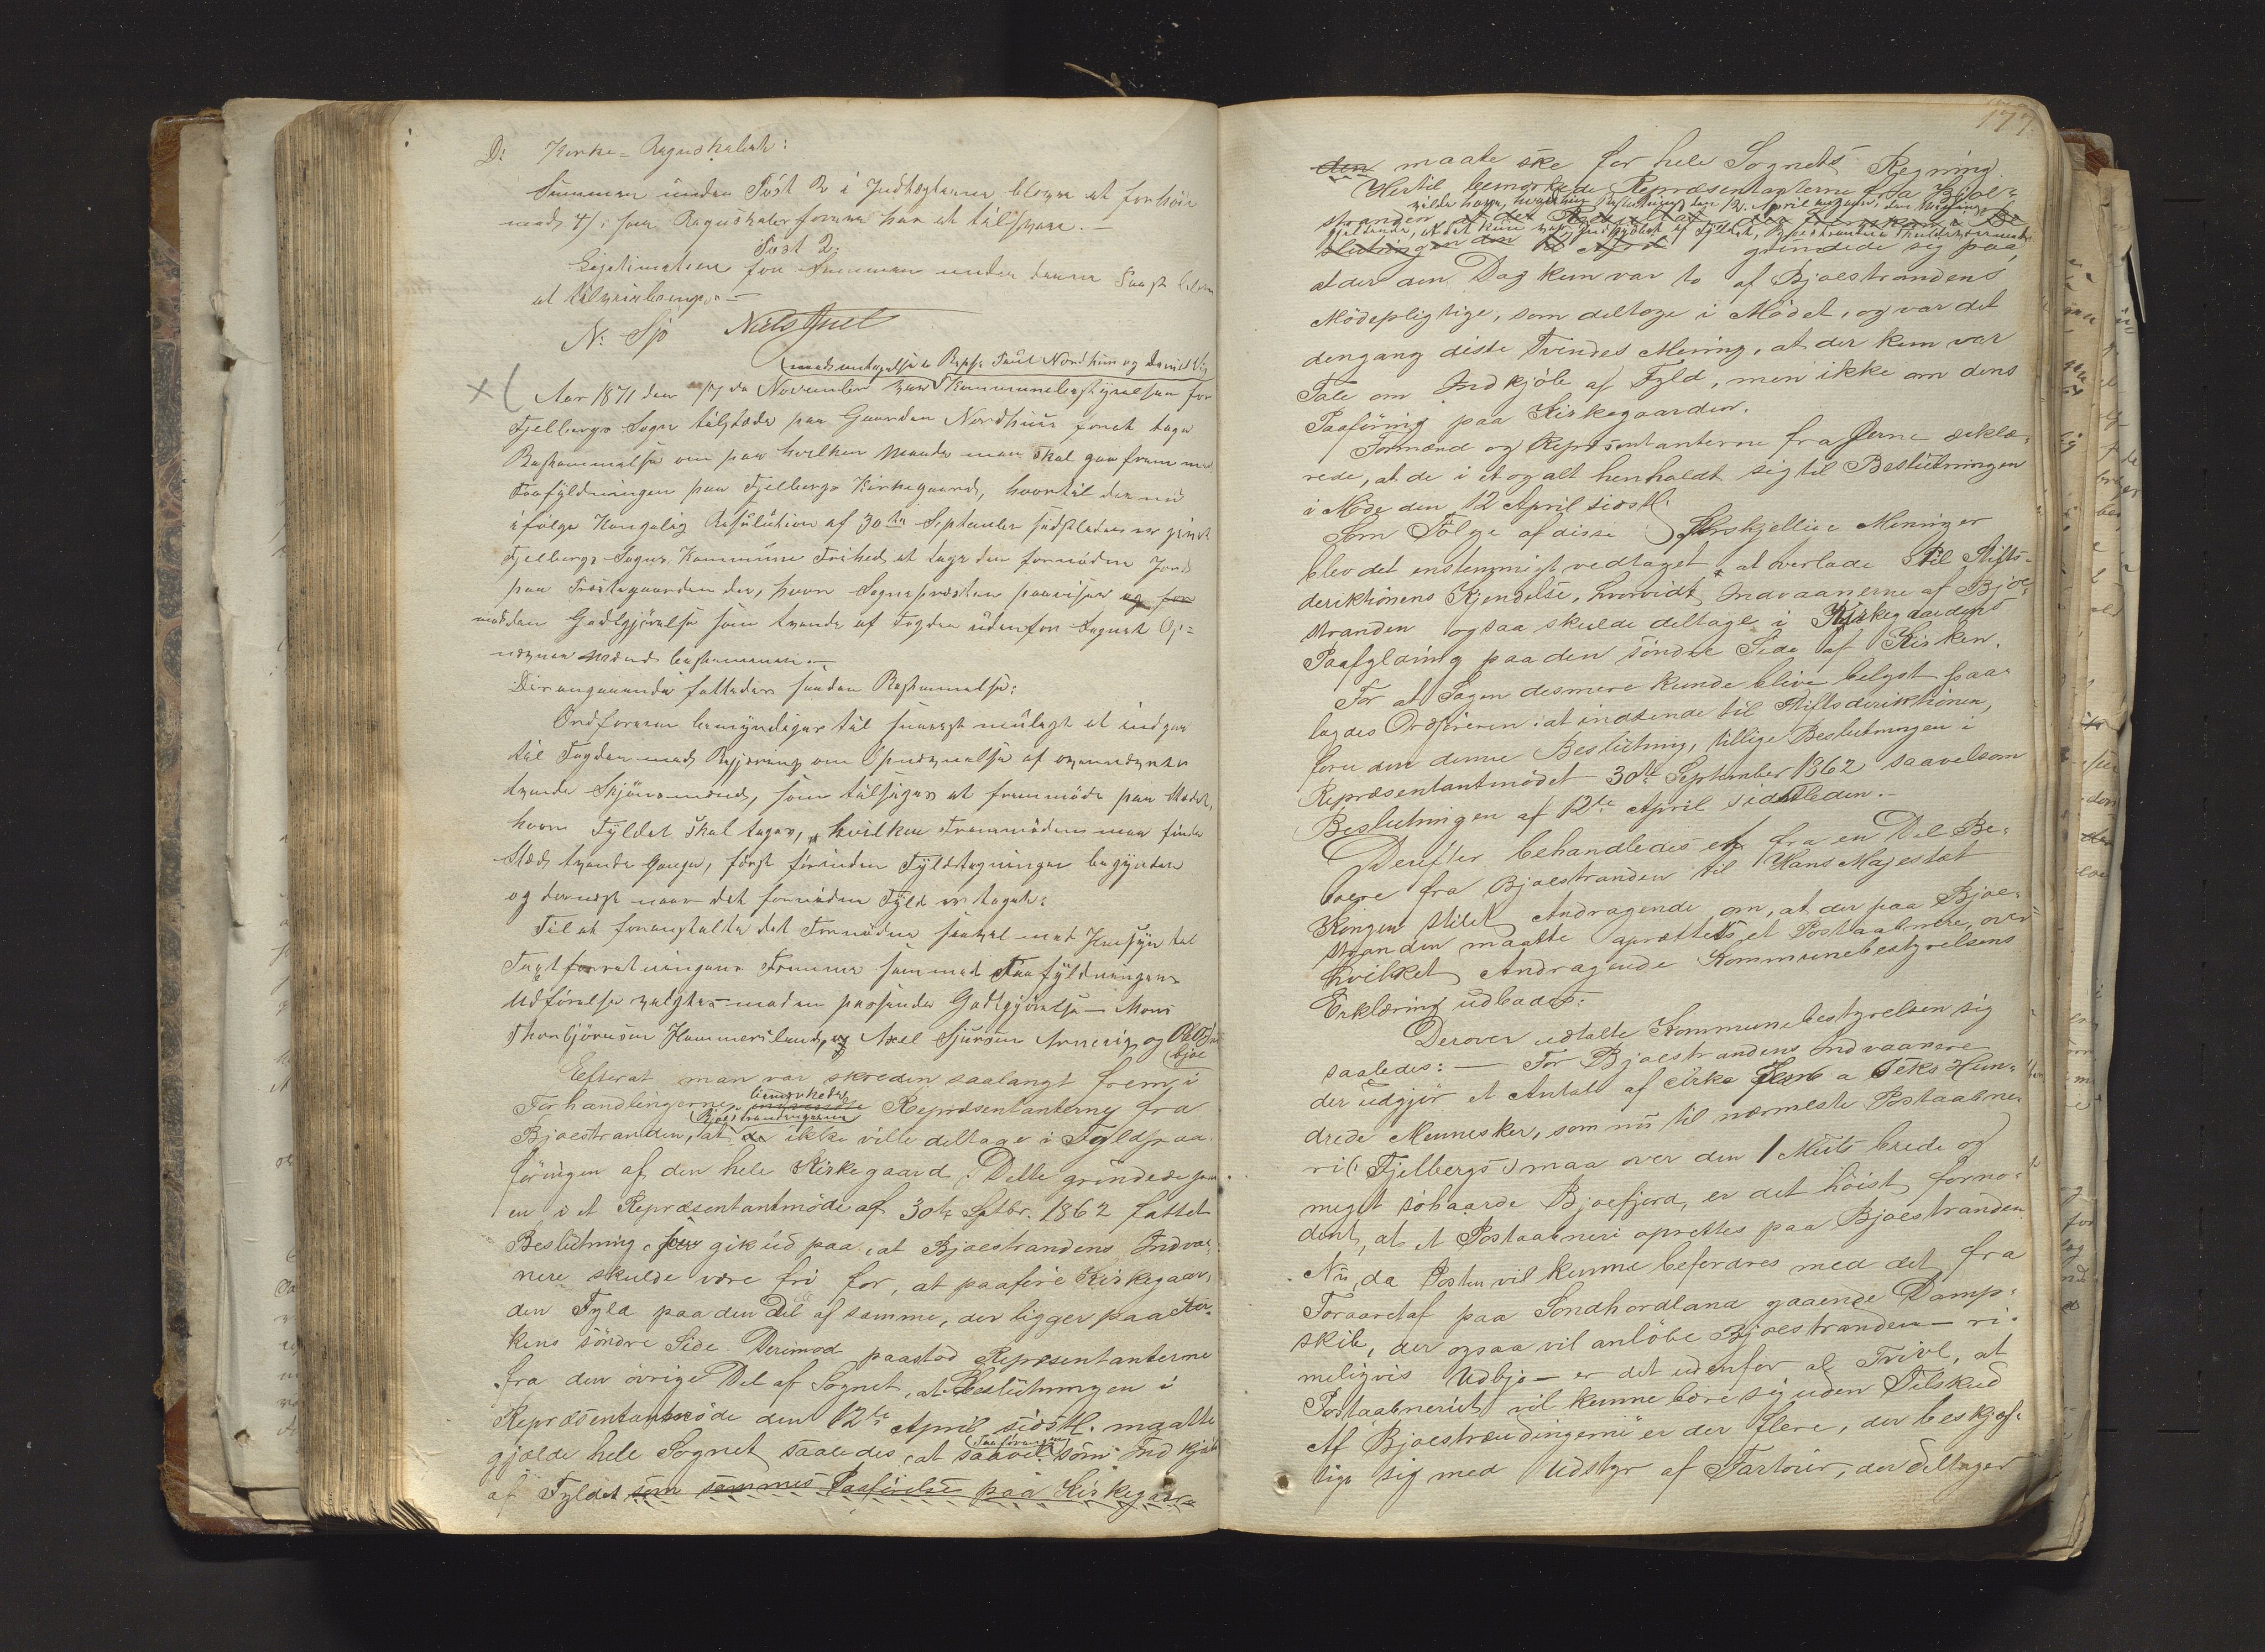 D: Kirke-Regnskabet:
Summen under Post 2 i Indtægterne bliver at forhöie
med 4 s, som Regnskabsföreren har at tilsvare. -
Post 2:
Legitimation for Summen under denne Post bliver
at tilveiebringe. -
N. Sjo Niels Juel
(med undtagelse Repr. Poul Nordhuus og
Aar 1871 den 17 de November var Kommunebestyrelsen for
Fjelbergs Sogn tilstæde paa Gaarden Nordhuus foret tage
Bestemmelse om paa hvilken Maade man skal gaa frem med
Paafyldningen paa Fjelbergs Kirkegaard, hvortil der nu
ifölge Kongelig Resolution af 30te September sidstleden er givet
Fjelbergs Sogns Kommune Frihed at tage den fornödne Jord
paa Præstegaarden der, hvor Sognepræsten paaviser og for
mod den Godtgjörelse som tvende af Fogden udenfor Sognet Op-
nævnte Mænd bestemmer. -
Desangaaende fattedes saadan Bestemmelse:
Ordföreren bemyndiges til snarest muligt at indgaa
til Fogden med Begjæring om Opnævnelse af ovennævnte
tvende Skjönsmænd, som tilsiges at fremmöde paa Stedet,
hvor Fyldet skal tages, hvilken Fremmöden maa finde
Sted tvende Gange, först forinden Fyldtagningen begynder
og dernæst naar det fornödne Fyld er taget:
Til at foranstalte det Fornödne saavel med Hensyn til
Taxtforretningens Fremme som med Paafyldningens
Udförelse valgtes - mod en passende Godtgjörelse - Mons
Thorbjörnsen Hammersland, og Axel Sjursen Arnevig og Ole
bjoe
Efterat man var skreden saalangt frem i
Forhandlingerne, bemærkede Repræsentanterne fra
Bjoestranden, at Bjoestrandingerne de ikke ville deltage i Fyldpaa
föringen af den hele Kirkegaard; Dette gründede paa
en i et Repræsentantmöde af 30te Septbr. 1862 fattet
Beslutning, som gik ud paa, at Bjoestrandens Indvaa-
nere skulde være fri for, at paaföre Kirkegaar-
den Fyld paa den Del af samme, der ligger paa Kir-
kens söndre Side. Derimod paastod Repræsentanterne
fra den övrige Del af Sognet, at Beslutningen i
Repræsentantmöde den 12te April sidstl. maatte
gjælde hele Sognet saaledes, at saavel Paaföringen som Indkjöb
af Fyldet som sammes Paaförelse paa Kirkegaar-
177.
den maate ske for hele Sognets Regning
Hertil bemærkede Repræsentanterne fra Bjoe-
stranden
grundede sig paa,
at der den Dag kun var to af Bjoestrandens
Mödepligtige, som deltoge i Mödet, og var det
dengang disse Tvendes Mening, at der kun var
Tale om Indkjöb af Fyld, men ikke om dens
Paaföring paa Kirkegaarden.
Formænd og Repræsentanterne fra Öerne erklæ-
rede, at de i et og alt henholdt sig til Beslutningen
i Möde den 12 April sidstl.
Som Fölge af disse forskjellige Meninger
blev det enstemmigt vedtaget at overlade til Stifts-
deriktionens Kjendelse, hvorvidt Indvaanerne af Bjoe-
stranden ogsaa skulde deltage i Kirkegaardens
Paafyldning paa den söndre Side af Kirken.
For at Sagen desmere kunde blive belyst paa-
lagdes Ordföreren: at indsende til Stiftsderiktionen,
foruden denne Beslutning, tillige Beslutningen i
Repræsentantmödet 30te September 1862 saavelsom
Beslutningen af 12te April sidstleden. -
Derefter behandledes et fra en Del Be-
boere fra Bjoestranden til Hans Majestæt
Kongen stilet Andragende om, at der paa Bjoe-
stranden maatte oprættes et Postaabnere, over
hvilket Andragende Kommunebestyrelsens
Erklæring udbades:
Derover udtalte Kommunebestyrelsen sig
saaledes: - For Bjoestrandens Indvaanere
der udgjör et Antal af cirka Fem a Seks Hun-
drede Mennesker, som nu til nærmeste Postaabne-
ri (: Fjelbergs :) maa over den 1 Miils brede og
meget söhaarde Bjoefjord, er det höist fornö-
dent, at et Postaabneri oprettes paa Bjoestranden
Nu, da Posten vil kunne befordres med det fra
Foraaret af paa Söndhordland gaaende Damp-
skib, der ogsaa vil anlöbe Bjoestranden - ri-
meligvis Udbjo - er det udenfor al Tvivl, at
Postaabneriet vil kunne bære sig uden Tilskud
Af Bjoestrandingerne er der flere, der beskjæf-
tige sig med Udstyr af Fartöier, der deltager